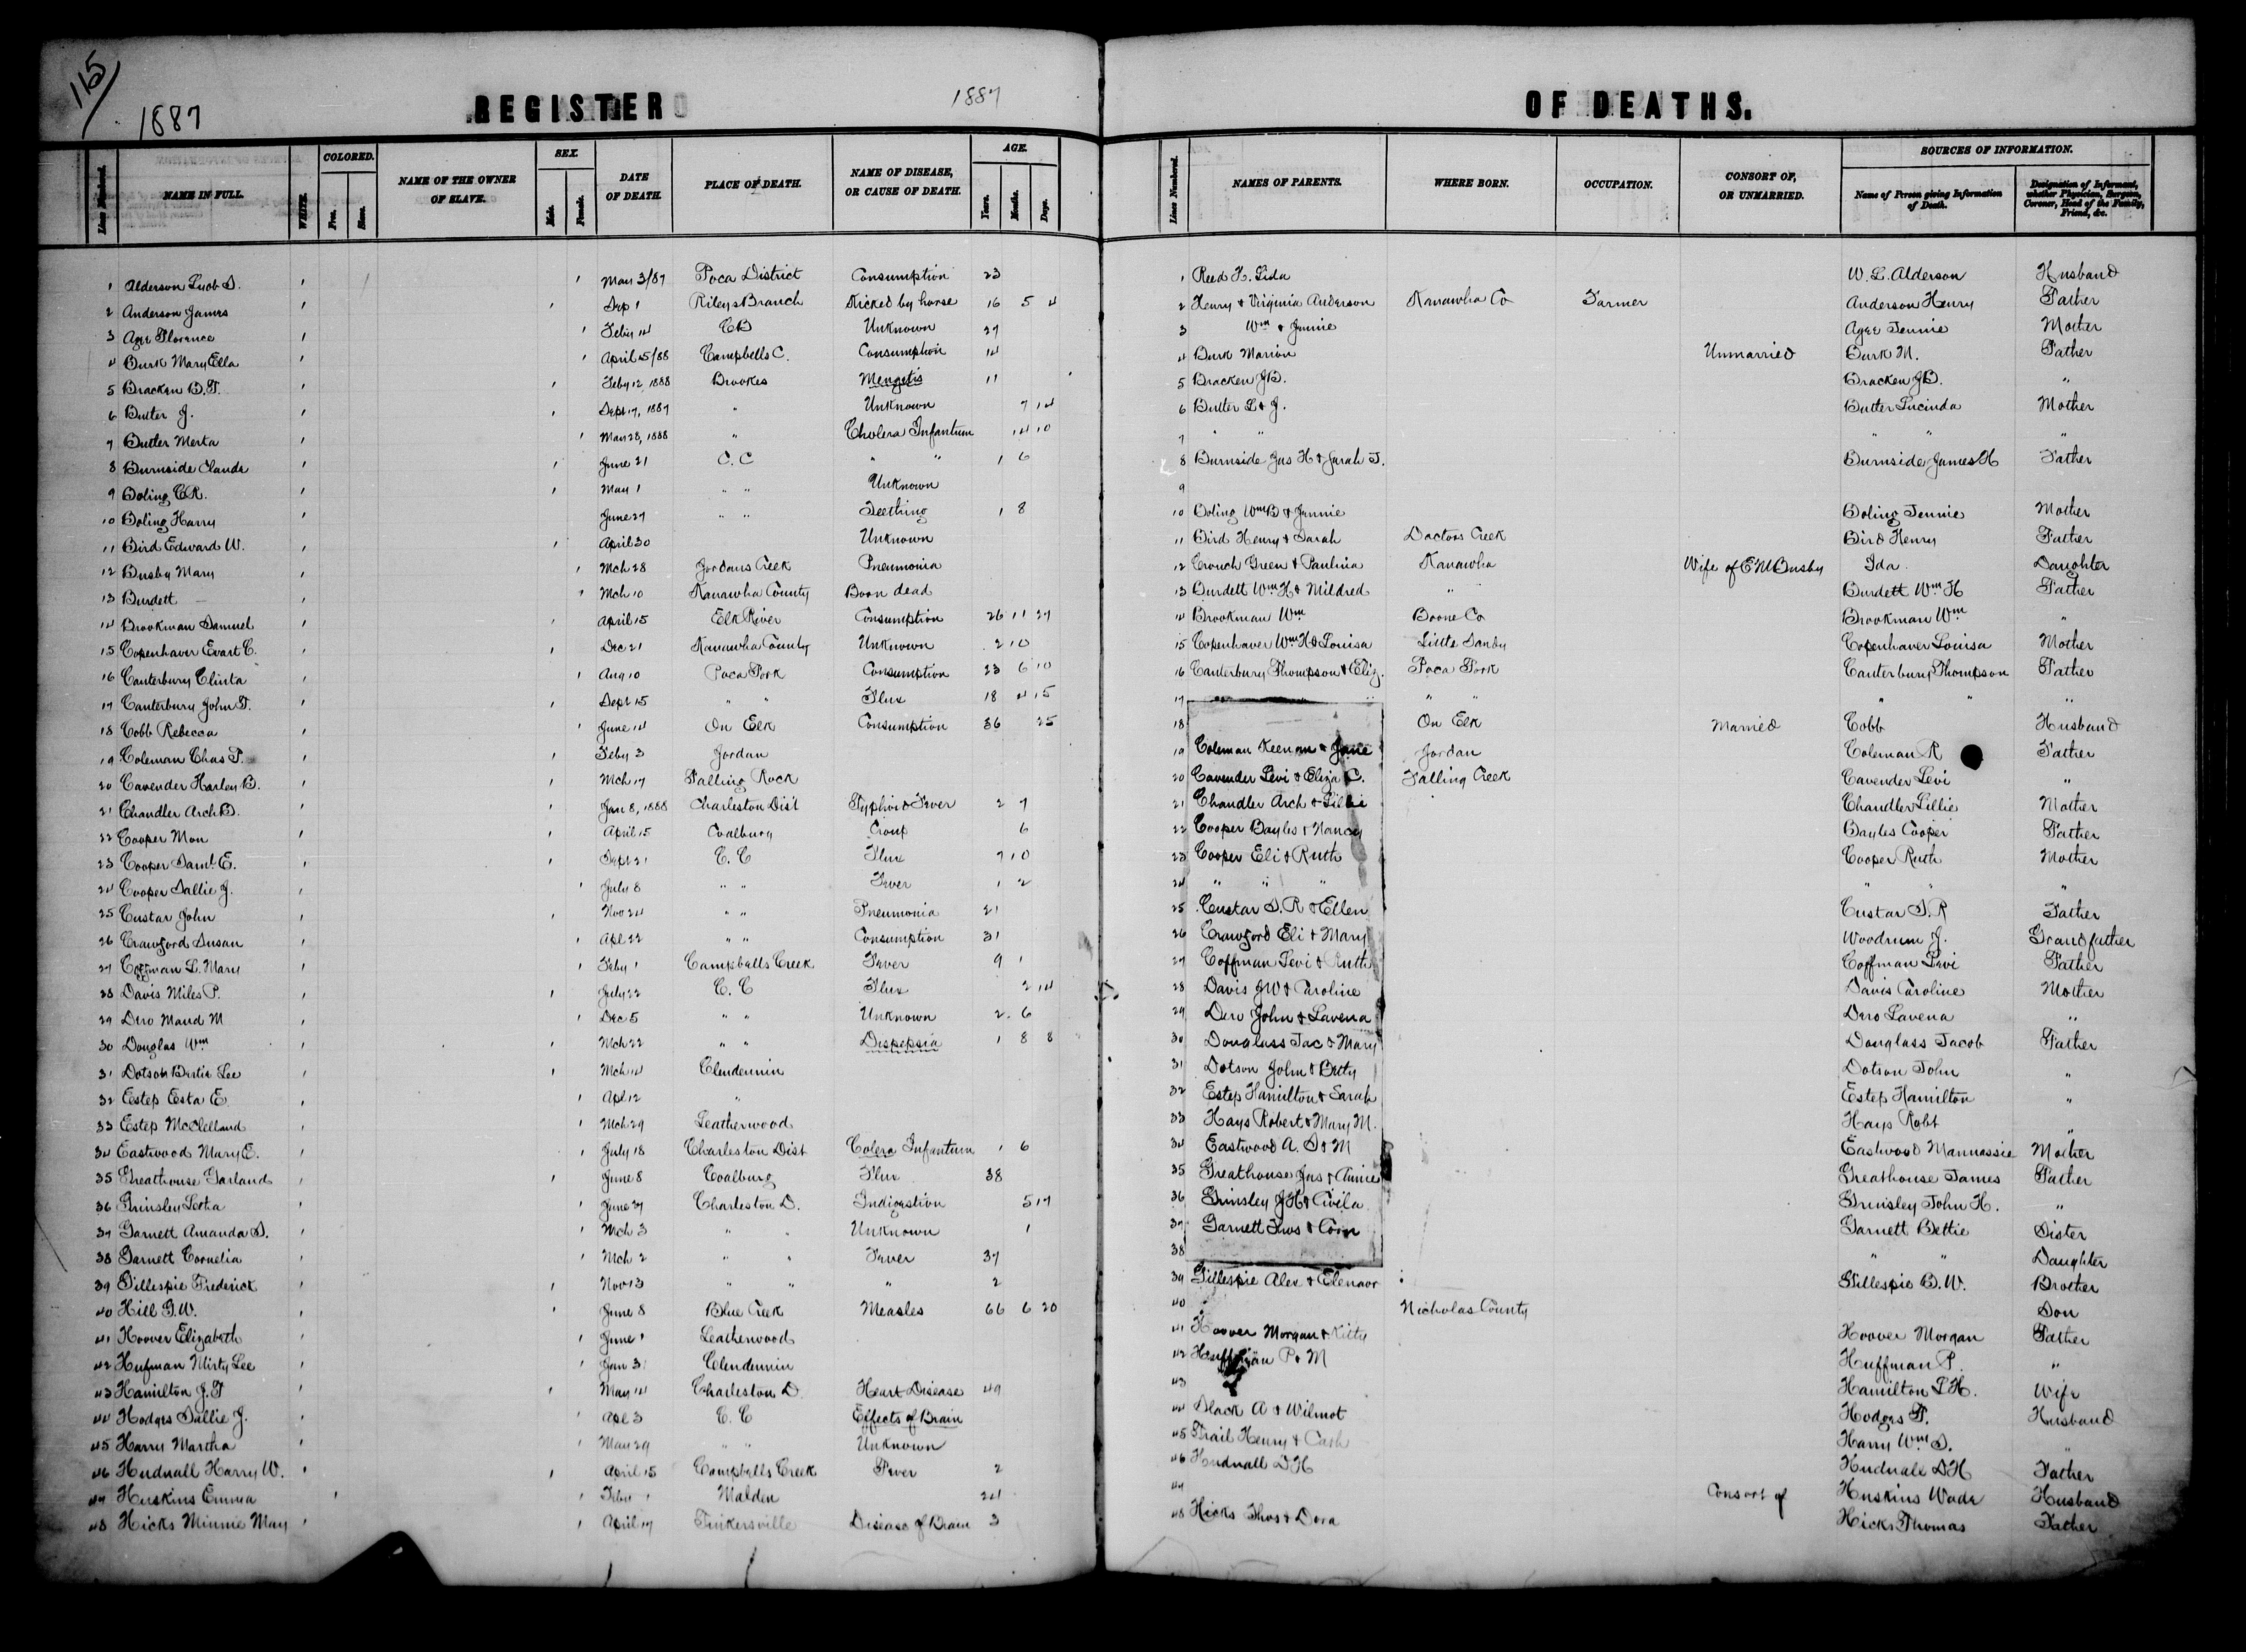 115
1887
REGISTER
1887
OF DEATHS.
Lines Numbered. NAME IN FULL. WHITE. COLORED. Free. Slave. NAME OF THE OWNER OF SLAVE. SEX. Male. Female. DATE OF DEATH. PLACE OF DEATH. NAME OF DISEASE, OR CAUSE OF DEATH. AGE. Years. Months. Days.
1 Alderson D. May 3/87 Poca District Consumption 23
2 Anderson James Sep 1 Rileys Branch Kicked by horse 16 5 4
3 Agee Florence Feby 14 CB Unknown 27
4 Burk Mary Ella April 15/88 Campbells C. Consumption 14
5 Bracken B.F. Feby 12 1888 Brookes Mengetis 11
6 Butler J. Sept 17, 1887 " Unknown 7 14
7 Butler Merta May 28, 1888 " Cholera Infantum 14 10
8 Burnside Claude June 21 C.C " " 1 6
9 Boling C.R. May 1 " " Unknown
10 Boling Harry June 27 " " Teething 1 8
11 Bird Edward W. April 30 Unknown
12 Busby Mary Mch 28 Jordans Creek Pneumonia
13 Burdett — Mch 10 Kanawha County Boon dead
14 Brookman Samuel April 15 Elk River Consumption 26 11 27
15 Copenhaver Evart C. Dec 21 Kanawha County Unknown 2 10
16 Canterbury Clinta Aug 10 Poca Fork Consumption 23 6 10
17 Canterbury John F. Sept 15 " " Flux 18 4 15
18 Cobb Rebecca June 14 On Elk Consumption 36 25
19 Coleman Chas P. Feby 3 Jordan
20 Cavender Harley B. Mch 17 Falling Rock
21 Chandler Arch B. Jan 8, 1888 Charleston Dist Typhoid Fever 2 7
22 Cooper Mon April 15 Coalburg Croup 6
23 Cooper Saml. E. Sept 21 C.C Flux 7 10
24 Cooper Sallie J. July 8 " " Fever 1 2
25 Custar John Nov 24 " " Pneumonia 21
26 Crawford Susan Apl 22 " " Consumption 31
27 Coffman L. Mary Feby 1 Campbells Creek Fever 9 1
28 Davis Miles P. July 22 C.C Flux 2 14
29 Dero Maud M Dec 5 " " Unknown 2 6
30 Douglas Wm Mch 22 " " Dispepsia 1 8 8
31 Dotson Bertie Lee Mch 14 Clendennin
32 Estep Esta E Apl 12 "
33 Estep McClelland Mch 29 Leatherwood
34 Eastwood Mary E. July 18 Charleston Dist Colera Infantum 1 6
35 Greathouse Garland June 8 Coalburg Flux 38
36 Grinsley Letha June 27 Charleston D. Indigestion 5 17
37 Garnett Amanda S. Mch 3 " " Unknown 1
38 Garnett Cornelia Mch 2 " " Fever 37
39 Gillespie Frederick Nov 13 " " " 2
40 Hill G.W. June 8 Blue Creek Measles 66 6 20
41 Hoover Elizabeth June 1 Leatherwood
42 Hufman Mirty Lee Jan 31 Clendennin
43 Hamilton J.F May 14 Charleston D. Heart Disease 49
44 Hodges Sallie J. Apl 3 C.C Effects of Brain
45 Harry Martha May 29 " " Unknown
46 Hudnall Harry W. April 15 Campbells Creek Fever 2
47 Huskins Emma Feby 1 Malden 24
48 Hicks Minnie May April 17 Tinkersville Disease of Brain 3
Lines Numbered. NAMES OF PARENTS. WHERE BORN. OCCUPATION. CONSORT OF, OR UNMARRIED. SOURCES OF INFORMATION. Name of Person giving Information of Death. Designation of Informant, whether Physician, Surgeon, Coroner, Head of the Family, Friend, &c.
1 Reed H. Lida W. L. Alderson Husband
2 Henry & Virginia Anderson Kanawha Co Farmer Anderson Henry Father
3 Wm & Jennie Agee Jennie Mother
4 Burk Marion Unmarried Burk M. Father
5 Bracken J.B. Bracken J.B. "
6 Butler L & J. Butler Lucinda Mother
7 " " " " "
8 Burnside Jas H & Sarah J. Burnside James H Father
9
10 Boling Wm B & Jennie Boling Jennie Mother
11 Bird Henry & Sarah Doctors Creek Bird Henry Father
12 Crouch Green & Paulina Kanawha Wife of E M Busby Ida Daughter
13 Burdett Wm H & Mildred " Burdett Wm H Father
14 Brookman Wm Boone Co Brookman Wm "
15 Copenhaver Wm H & Louisa Little Sandy Copenhaver Louisa Mother
16 Canterbury Thompson & Eliz. Poca Fork Canterbury Thompson Father
17 " " " " "
18 On Elk Married Cobb Husband
19 Coleman Keenan & Jane Jordan Coleman R Father
20 Cavender Levi & Eliza C. Falling Creek Cavender Levi "
21 Chandler Arch & Lillie Chandler Lillie Mother
22 Cooper Bayles & Nancy Bayles Cooper Father
23 Cooper Eli & Ruth Cooper Ruth Mother
24 " " " " " "
25 Custar S.R & Ellen Custar S.R Father
26 Crawford Eli & Mary Woodrum J. Grandfather
27 Coffman Levi & Ruth Coffman Levi Father
28 Davis J W & Caroline Davis Caroline Mother
29 Dero John & Lavena Dero Lavena "
30 Douglass Jac & Mary Douglass Jacob Father
31 Dotson John & Betty Dotson John "
32 Estep Hamilton & Sarah Estep Hamilton "
33 Hays Robert & Mary M. Hays Robt "
34 Eastwood A. S & M Eastwood Mannassie Mother
35 Greathouse Jas & Annie Greathouse James Father
36 Grinsley J H & Civila Grinsley John H. "
37 Garnett Thos & Corn Garnett Bettie Sister
38 " " Daughter
39 Gillespie Alex & Elenaor Gillespie B.W. Brother
40 Nicholas County Son
41 Hoover Morgan & Kitty Hoover Morgan Father
42 Huffman P & M Huffman P. "
43 Hamilton L H. Wife
44 Slack A & Wilmot Hodges F. Husband
45 Thail Henry & Cash Harry Wm S. "
46 Hudnall D H Hudnall D H Father
47 Consort of Huskins Wade Husband
48 Hicks Thos & Dora Hicks Thomas Father